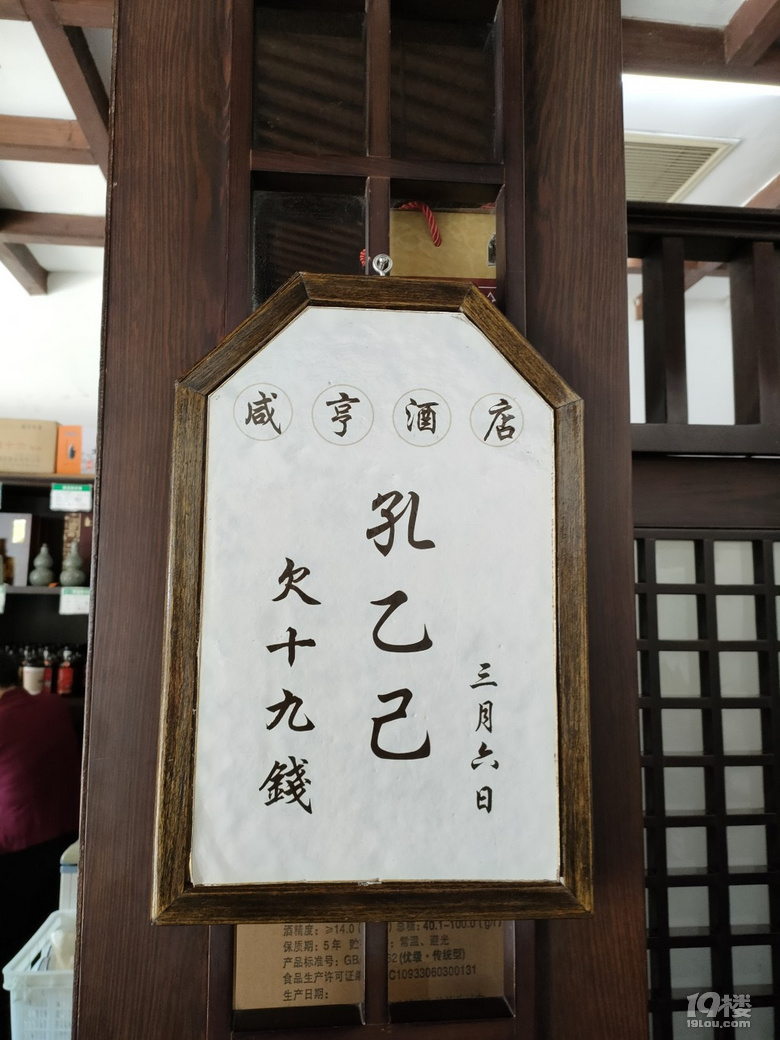 咸亨酒店
三月六日
孔乙己
欠十九錢
酒精度：≥14.0
总糖：40.1-100.0(g/l)
保质期：5年
常温、避光
产品标准号：GB
62(优级·传统型)
食品生产许可证
C10933060300131
生产日期：
19楼
19lou.com